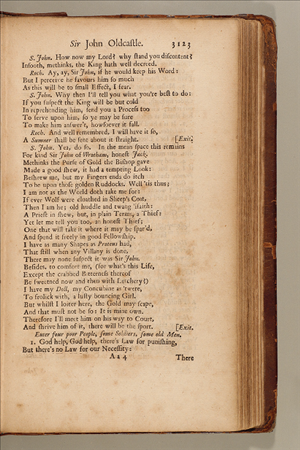 Sir John Oldcastle. 3123
S. John. How now my Lord? why stand you discontent?
Insooth, methinks, the King hath well decreed.
Roch. Ay, ay, Sir John, if he would keep his Word:
But I perceive he favours him so much
As this will be to small Effect, I fear.
S. John. Why then I'll tell you what you're best to do:
If you suspect the King will be but cold
In reprehending him, send you a Process too
To serve upon him, so ye may be sure
To make him answer't, howsoever it fall.
Roch. And well remembred, I will have it so,
A Sumner shall be sent about it straight. [Exit.
S. John. Yea, do so. In the mean space this remains
For kind Sir John of Wrotham, honest Jack.
Methinks the Purse of Gold the Bishop gave
Made a good shew, it had a tempting Look:
Beshrew me, but my Fingers ends do itch
To be upon those golden Ruddocks. Well, 'tis thus;
I am not as the World doth take me for:
If ever Wolf were cloathed in Sheep's Coat,
Then I am he; old huddle and twang i'faith:
A Priest in shew, but, in plain Terms, a Thief:
Yet let me tell you too, an honest Thief;
One that will take it where it may be spar'd,
And spend it freely in good Fellowship.
I have as many Shapes as Proteus had,
That still when any Villany is done,
There may none suspect it was Sir John.
Besides, to comfort me, (for what's this Life,
Except the crabbed Bitterness thereof
Be sweetned now and then with Letchery?)
I have my Doll, my Concubine as 'twere,
To frolick with, a lusty bouncing Girl.
But whilst I loiter here, the Gold may scape,
And that must not be so: It is mine own.
Therefore I'll meet him on his way to Court,
And shrive him of it, there will be the sport. [Exit.
Enter four poor People, some Soldiers, some old Men.
1. God help, God help, there's Law for punishing,
But there's no Law for our Necessity:
There